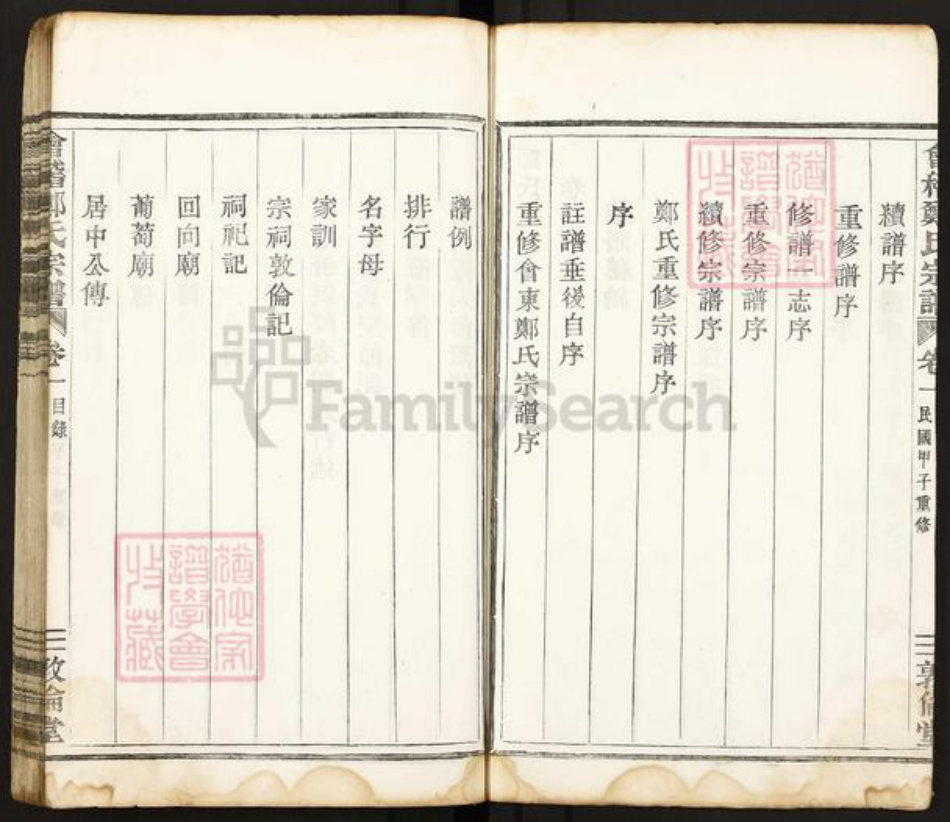 會稽鄭氏宗譜 卷一 民國甲子重修 二 敦倫堂
續譜序
重修譜序
修譜一志序
重修宗譜序
續修宗譜序
鄭氏重修宗譜序
序
註譜垂後自序
重修會東鄭氏宗譜序
譜例
排行
名字母
家訓
宗祠敦倫記
祠祀記
回向廟
葡萄廟
居中公傳
會稽鄭氏宗譜 卷一 目錄 二 敦倫堂
猶他家
譜學會
收藏
猶他家
譜學會
收藏
FamilySearch